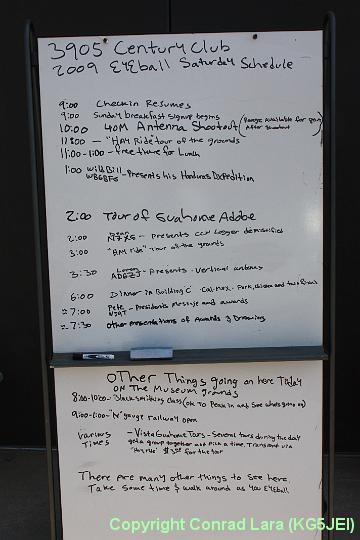 3905 Century Club
2009 EyEball Saturday Schedule
9:00 Checkin Resumes
9:00 Sunday breakfast signup begins
10:00 40M Antenna Shootout (Range available for
After Shootout
11:00 - "HAM Ride" tour of the grounds
11:00-1:00 - free time for Lunch
1:00 Wild Bill
WB6BFG - Presents his Honduras DXpedition
2:00 Tour of Guahome Adobe
2:00 - Presents CCN Logger demistified
3:00 "HAM ride" tour of the grounds
3:30 Loren
AD6ZJ - Presents - Vertical antenas
6:00 Dinner in Building C - Cal-Mex - Pork, chicken and
≈ 7:00 Pete - Presidents message and awards
N5AT
≈ 7:30 other presentations of Awards & Drawing
OTher Things going on here Today
ON The Museum grounds
8:00-10:00 - Blacksmithing Class (OK To Peak in and see whats going on)
9:00-1:00 - "N" gauge railway open
Various
Times - Vista Guahome Tours - Several tours during the day
get a group together and pick a time. Transport via
"Hayride" $3.00 for the tour
There are many other things to see here,
Take some time & walk around as you EyEball
Copyright Conrad Lara (KG5JEI)